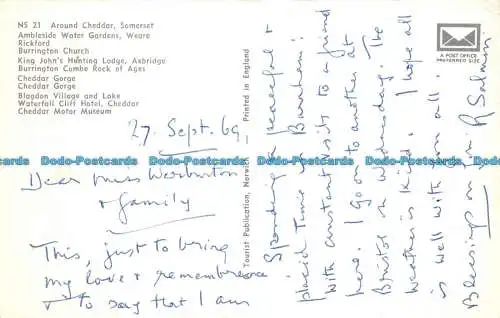 NS 21 Around Cheddar, Somerset
Ambleside Water Gardens, Weare
Rickford
Burrington Church
King John's Hunting Lodge, Axbridge
Burrington Combe Rock of Ages
Cheddar Gorge
Cheddar Gorge
Blagdon Village and Lake
Waterfall Cliff Hotel, Cheddar
Cheddar Motor Museum
A POST OFFICE
PREFERRED SIZE
Tourist Publication, Norwich
Printed in England
27. Sept. 69.
Dear Miss Warburton
& family
This, just to bring
my love & remembrance
& to say that I am
Spending a peaceful &
placid time in Burnham!
With constant visits to a friend
here. I go on to another at
Bristol on Wednesday. The
Weather is kind. I hope all
is well with you all.
Blessings on you R Salmon
Dodo-Postcards Dodo-Postcards Dodo-Postcards Dodo-Postcards Dodo-Postcards
Dodo-Postcards Dodo-Postcards Dodo-Postcards Dodo-Postcards Dodo-Postcards